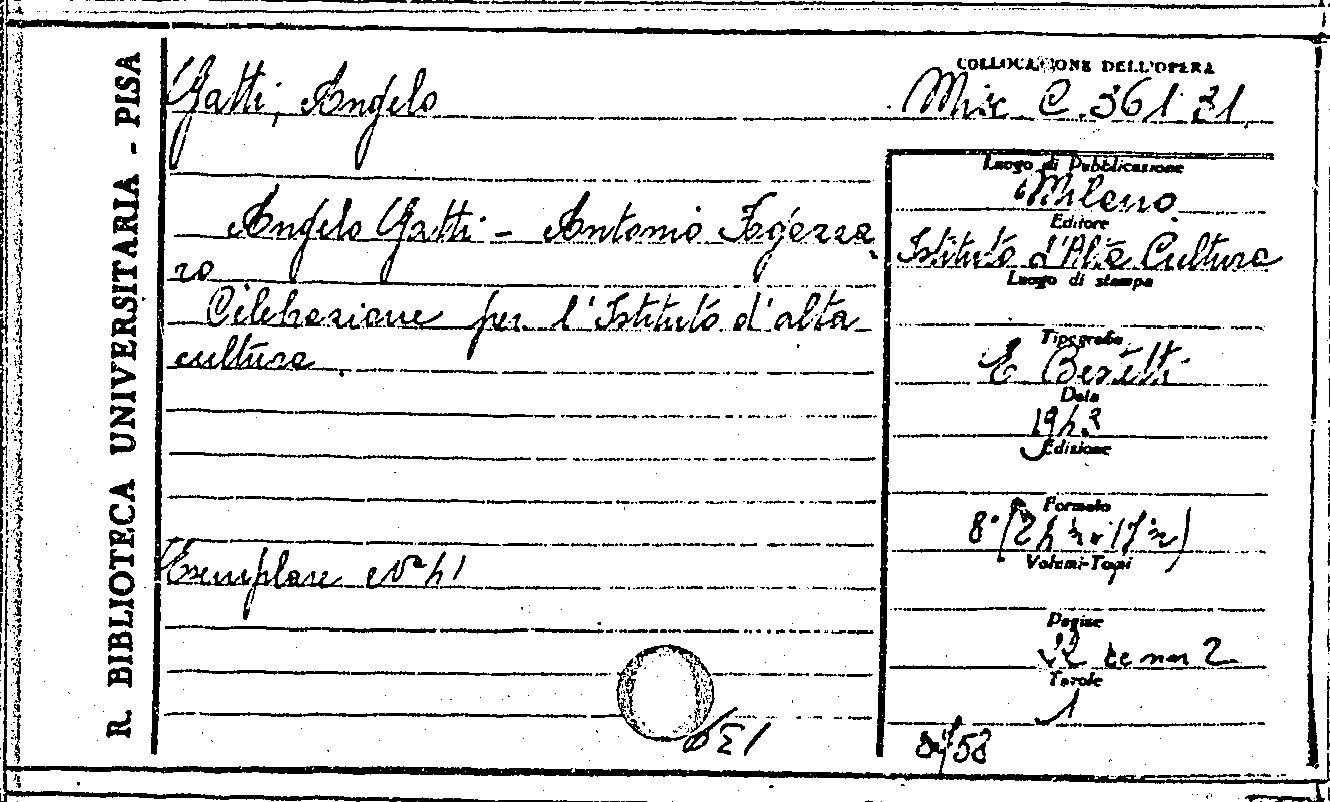 R. BIBLIOTECA UNIVERSITARIA - PISA
Gatti, Angelo
COLLOCAZIONE DELL'OPERA
Misc. C. 361 31
Angelo Gatti - Antonio Fogazza
ro
Celebrazione per l'Istituto d'alta
cultura.
Esemplare N° 41
Luogo di Pubblicazione
Milano
Editore
Istituto d'Alta Cultura
Luogo di stampa
Tipografia
E
Data
1943
Edizione
Formato
8°
Volumi-Tomi
Pagine
22
2
Tavole
1